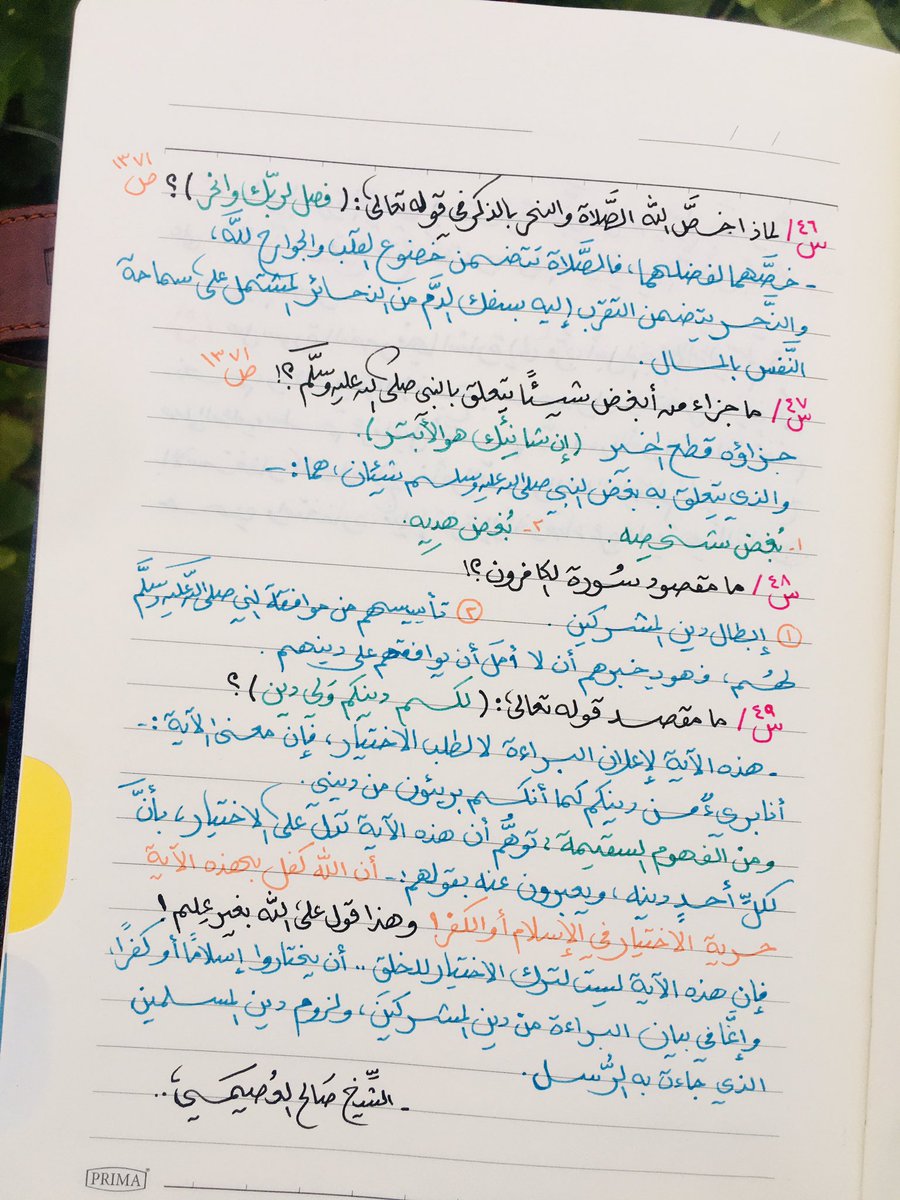 س٤٦/ لماذا خصَّ الله الصَّلاة والنحر بالذكر في قوله تعالى: (فصل لربّك وانحر)؟ ص ١٣٧١
- خصَّهما لفضلهما، فالصَّلاة تتضمن خضوع القلب والجوارح للَّه،
والنَّحر يتضمن التقرب إليه بسفك الدَّم من النحائر المشتمل على سماحة
النَّفس بالمال.
س٤٧/ ما جزاء من أبغض شيئًا يتعلق بالنبي صلى الله عليه وسلَّم؟! ص ١٣٧١
جزاؤه قطع الخير (إن شانئك هو الأبتر).
والذي يتعلق به بغض النبي صلى الله عليه وسلم شيئان، هما:-
١- بُغض شخصِه. ٢- بُغض هديِه.
س٤٨/ ما مقصود سُورة الكافرون؟!
١ إبطال دين المشركين. ٢ تأييسهم من موافقة النبي صلى الله عليه وسلَّم
لهُم، فهو يخبرهم أن لا أمل أن يوافقهم على دينهم.
س٤٩/ ما مقصد قوله تعالى: (لكم دينكم ولي دين)؟
- هذه الآية لإعلان البراءة لا لطلب الاختيار، فإن معنى الآية:-
أنا بريءٌ من دينكم كما أنكم بريئون من ديني.
ومن الفهوم السقيمة: توهُّم أن هذه الآية تدل على الاختيار، بأنَّ
لكلّ أحدٍ دينه، ويعبرون عنه بقولهم:- أن الله كفل بهذه الآية
حرية الاختيار في الإسلام أو الكفر! وهذا قول على الله بغير علم!
فإن هذه الآية ليست لترك الاختيار للخلق .. أن يختاروا إسلامًا أو كفرًا،
وإنَّما في بيان البراءة من دين المشركين، ولزوم دين المسلمين
الذي جاءت به الرُّسل.
- الشِّيخ صَالح العُصيمي ..
PRIMA